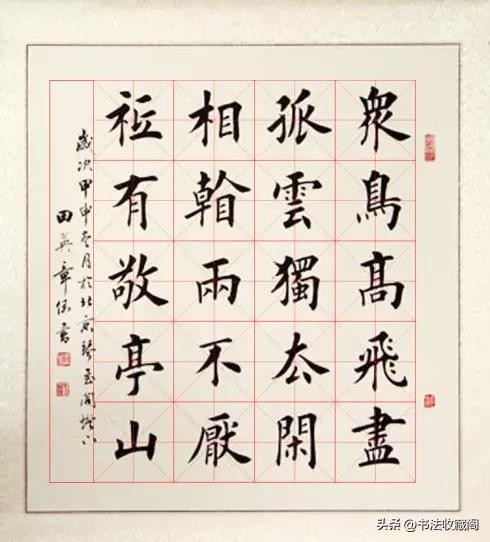 衆鳥髙飛盡
孤雲獨厺閑
相看兩不厭
祗有敬亭山
歲次甲申冬月於北京閣燈下
田英章書
头条 @书法收藏阁